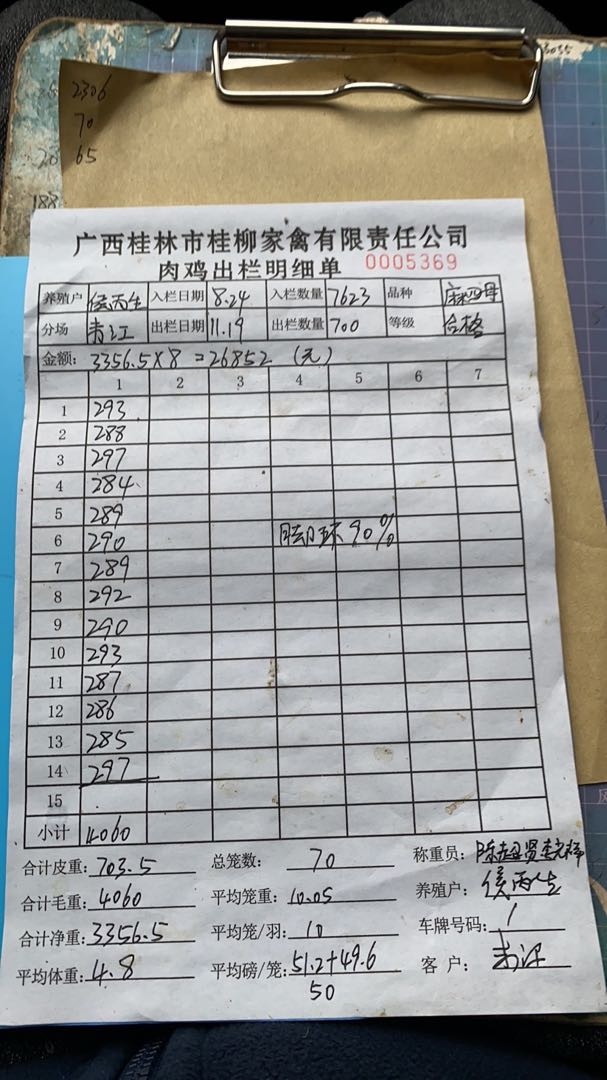 3035
2306
70
65
188
广西桂林市桂柳家禽有限责任公司
肉鸡出栏明细单 0005369
养殖户 侯丙生 入栏日期 8.24 入栏数量 7623 品种
分场 青江 出栏日期 11.19 出栏数量 700 等级 合格
金额: 3356.5×8=26852 (元)
1 2 3 4 5 6 7
1 293
2 288
3 297
4 284
5 289
6 290 脚环90%
7 289
8 292
9 290
10 293
11 287
12 286
13 285
14 297
15
小计 4060
合计皮重: 703.5 总笼数: 70 称重员:
合计毛重: 4060 平均笼重: 10.05 养殖户: 侯丙生
合计净重: 3356.5 平均笼/羽: 10 车牌号码: 1
平均体重: 4.8 平均磅/笼: 51.2+49.6 客户:
50